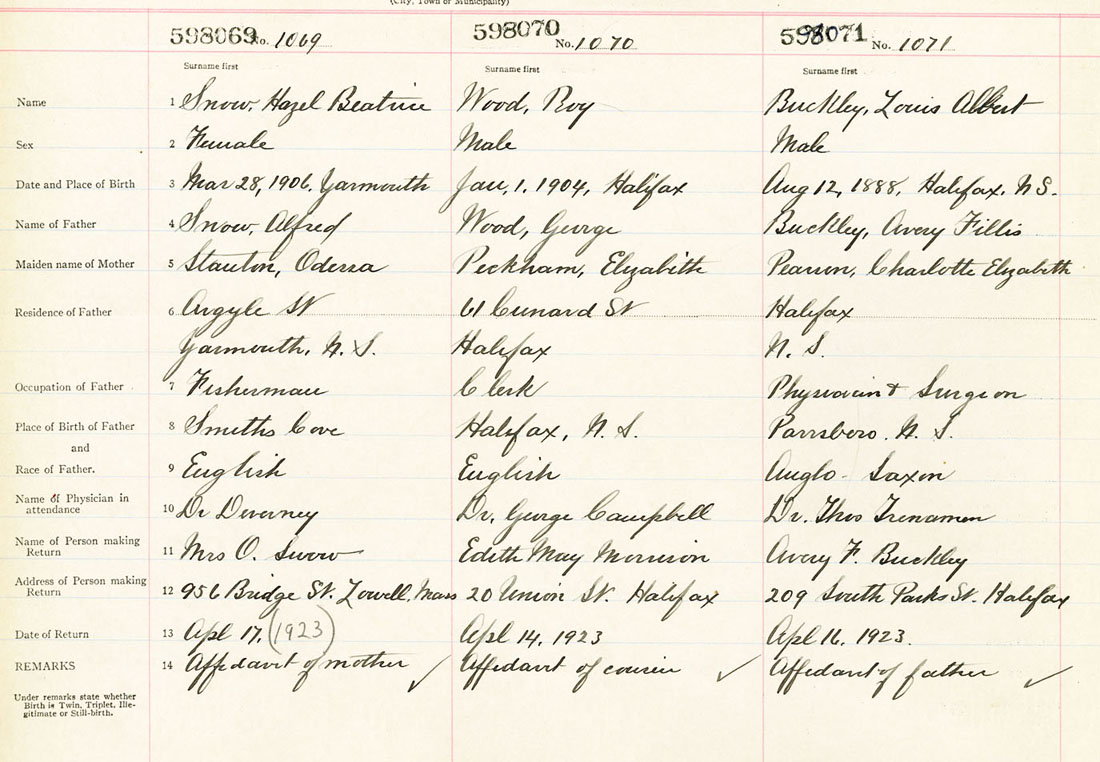 (City, Town or Municipality)
598069 No. 1069 598070 No. 1070 598071 No. 1071
Surname first Surname first Surname first
Name 1 Snow, Hazel Beatrice Wood, Roy Buckley, Louis Albert
Sex 2 Female Male Male
Date and Place of Birth 3 Mar 28, 1906, Yarmouth Jan, 1, 1904, Halifax Aug 12, 1888, Halifax, N S.
Name of Father 4 Snow, Alfred Wood, George Buckley, Avery Fillis
Maiden name of Mother 5 Odessa Peckham, Elizabeth Pearson, Charlotte Elizabeth
Residence of Father 6 Argyle St 61 Cunard St Halifax
Yarmouth, N. S. Halifax N. S.
Occupation of Father 7 Fisherman Clerk & Surgeon
Place of Birth of Father 8 Smiths Cove Halifax, N. S. Parrsboro. N. S.
and
Race of Father. 9 English English Anglo-Saxon
Name of Physician in
attendance 10 Dr Dr. George Campbell Dr. Thos Trenaman
Name of Person making
Return 11 Mrs O. Snow Edith May Morrison Avery F. Buckley
Address of Person making
Return 12 956 Bridge St. Lowell, Mass 20 Union St. Halifax 209 South Park St. Halifax
Date of Return 13 Apl 17, (1923) Apl 14, 1923 Apl 16, 1923.
REMARKS 14 Affidavit of mother ✓ Affidavit of cousin ✓ Affidavit of father ✓
Under remarks state whether
Birth is Twin, Triplet, Ille-
gitimate or Still-birth.